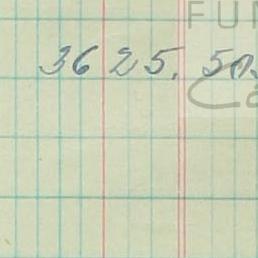 FUN
3625.50